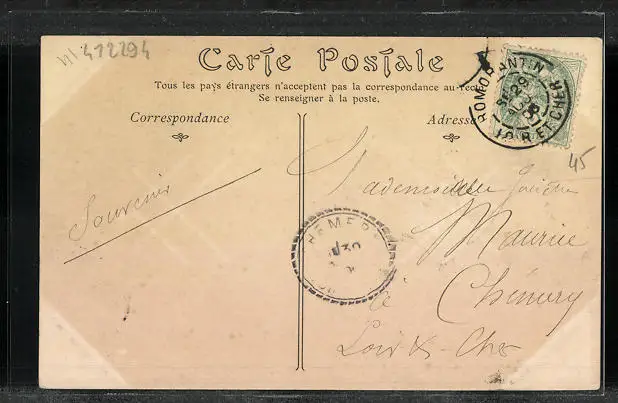 412294
Carte Postale
Tous les pays étrangers n'acceptent pas la correspondance au rec
Se renseigner à la poste.
Correspondance
Adresse
ROMORANTIN
LOIR-ET-CHER
45
Souvenir
Mademoiselle
Maurice
à
Chémery
Loir & Cher